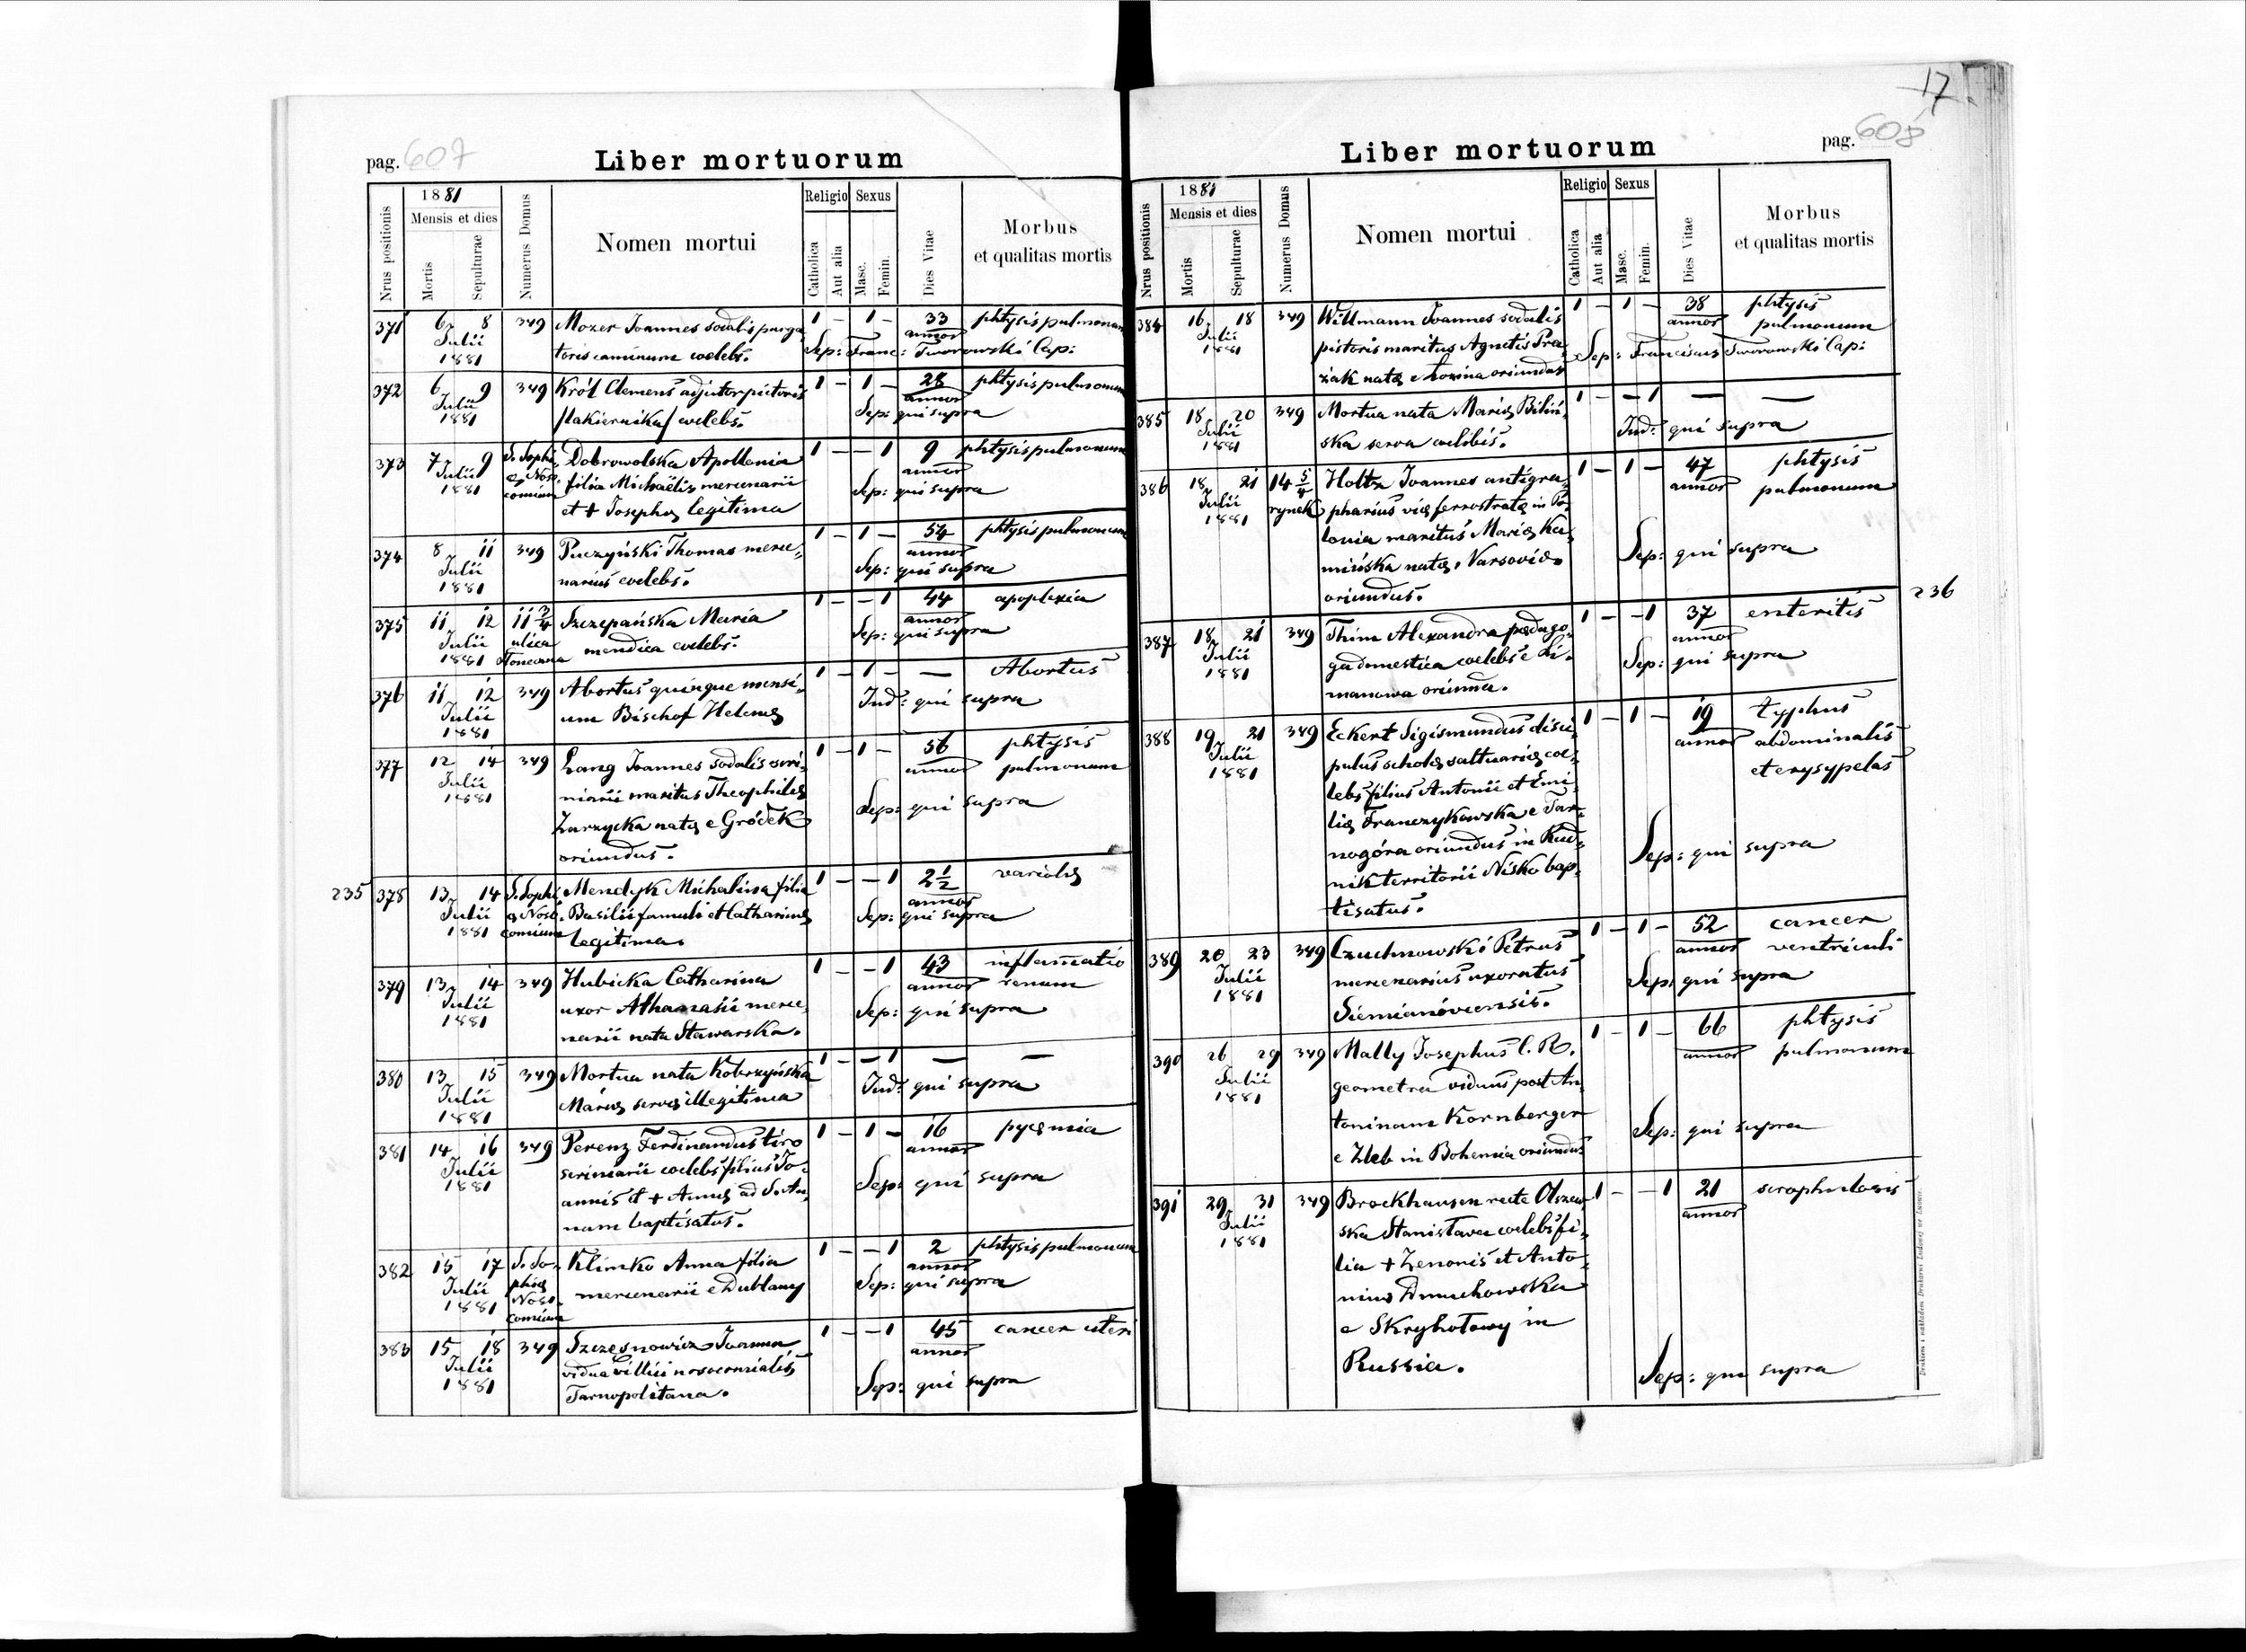 pag. 607
Liber mortuorum
Nrus positionis
1881
Mensis et dies
Mortis
Sepulturae
Numerus Domus
Nomen mortui
Religio
Catholica
Aut alia
Sexus
Masc.
Femin.
Dies Vitae
Morbus
et qualitas mortis
371 6 8 349 Mozer Joannes sodalis purga 1 – 1 – 33 phtysis pulmonum
Julii annor
1881 toris caminum coelebs. Sep: Franc: Tworowski Cap:
372 6 9 349 Król Clemens adjutor pictoris 1 – 1 – 28 phtysis pulmonum
Julii annor
1881 /lakiernika/ coelebs. Sep: qui supra
373 7 9 S. Sophi Dobrowolska Apollonia 1 – – 1 9 phtysis pulmonum
Julii æ Noso filia Michaëlis mercenarii annor
1881 comium Sep: qui supra
et + Josephæ legitima
374 8 11 349 Puczyński Thomas merce 1 – 1 – 54 phtysis pulmonum
Julii annor
1881 narius coelebs. Sep: qui supra
375 11 12 11 3/4 Szczepańska Maria 1 – – 1 44 apoplexia
Julii ulica annor
1881 Słoneczna mendica coelebs. Sep: qui supra
376 11 12 349 Abortus quinque mensi 1 – 1 – — Abortus
Julii um Bischof Helenæ Ind: qui supra
1881
377 12 14 349 Lang Joannes sodalis scri 1 – 1 – 56 phtysis
Julii niarii maritus Theophilæ annor pulmonum
1881 Zarzycka natæ e Gródek Sep: qui supra
oriundus.
235 378 13 14 S. Sophi Mendyk Michalina filia 1 – – 1 2 1/2 variolæ
Julii æ Noso Basilii famuli et Catharinæ annor
1881 comium legitima. Sep: qui supra
379 13 14 349 Hubicka Catharina 1 – – 1 43 inflamatio
Julii uxor Athanasii merce annor renum
1881 narii nata Stawarska. Sep: qui supra
380 13 15 349 Mortua nata Kobrzyńska 1 – – 1 — —
Julii Mariæ servæ illegitima Ind: qui supra
1881
381 14 16 349 Perenz Ferdinandus tiro 1 – 1 – 16 pyæmia
Julii scriniarii coelebs filius Jo annor
1881 annis et + Annæ ad S. An Sep: qui supra
nam baptisatus.
382 15 17 S. So Klimko Anna filia 1 – – 1 2 phtysis pulmonum
Julii phiæ mercenarii e Dublany annor
1881 Noso Sep: qui supra
comium
383 15 18 349 Szczęsnowicz Joanna 1 – – 1 45 cancer uteri
Julii vidua villici nosocomialis annor
1881 Tarnopolitana. Sep: qui supra
17
pag. 608
Liber mortuorum
Nrus positionis
1881
Mensis et dies
Mortis
Sepulturae
Numerus Domus
Nomen mortui
Religio
Catholica
Aut alia
Sexus
Masc.
Femin.
Dies Vitae
Morbus
et qualitas mortis
384 16 18 349 Willmann Joannes sodalis 1 – 1 – 38 phtysis
Julii pistoris maritus Agnetis annor pulmonum
1881 natæ e oriundus Sep: Franciscus Tworowski Cap:
385 18 20 349 Mortua nata Mariæ Biliń 1 – – 1 — —
Julii ska serva coelibis. Ind: qui supra
1881
386 18 21 14 5/4 Holtz Joannes antigra 1 – 1 – 47 phtysis
Julii rynek pharius viæ ferrostratæ in Po annor pulmonum
1881 lonia maritus Mariæ Ka
mińska natæ, Varsoviæ Sep: qui supra
oriundus.
236
387 18 21 349 Thim Alexandra pædago 1 – – 1 37 enteritis
Julii ga domestica coelebs e Li annor
1881 manowa oriunda. Sep: qui supra
388 19 21 349 Eckert Sigismundus disci 1 – 1 – 19 typhus
Julii pulus scholæ saltuariæ coe annor abdominalis
1881 lebs filius Antonii et Emi et erysypelas
liæ Franczykowska e Tar
nogóra oriundus in Rud Sep: qui supra
nik territorii Nisko bap
tisatus.
389 20 23 349 Czuchnowski Petrus 1 – 1 – 52 cancer
Julii mercenarius uxoratus annor ventriculi
1881 Siemianóvcensis. Sep: qui supra
390 26 29 349 Mally Josephus C. R. 1 – 1 – 66 phtysis
Julii geometra viduus post An annor pulmonum
1881 toninam Kornberger
e Zleb in Bohemia oriundus Sep: qui supra
391 29 31 349 Brockhausen recte Olszew 1 – – 1 21 scrophulosis
Julii ska Stanislava coelebs fi annor
1881 lia + Zenonis et Anto
ninæ Dmuchowska
e Skryhołowy in
Russia. Sep: qui supra
Drukiem i nakładem Drukarni Ludowej we Lwowie.